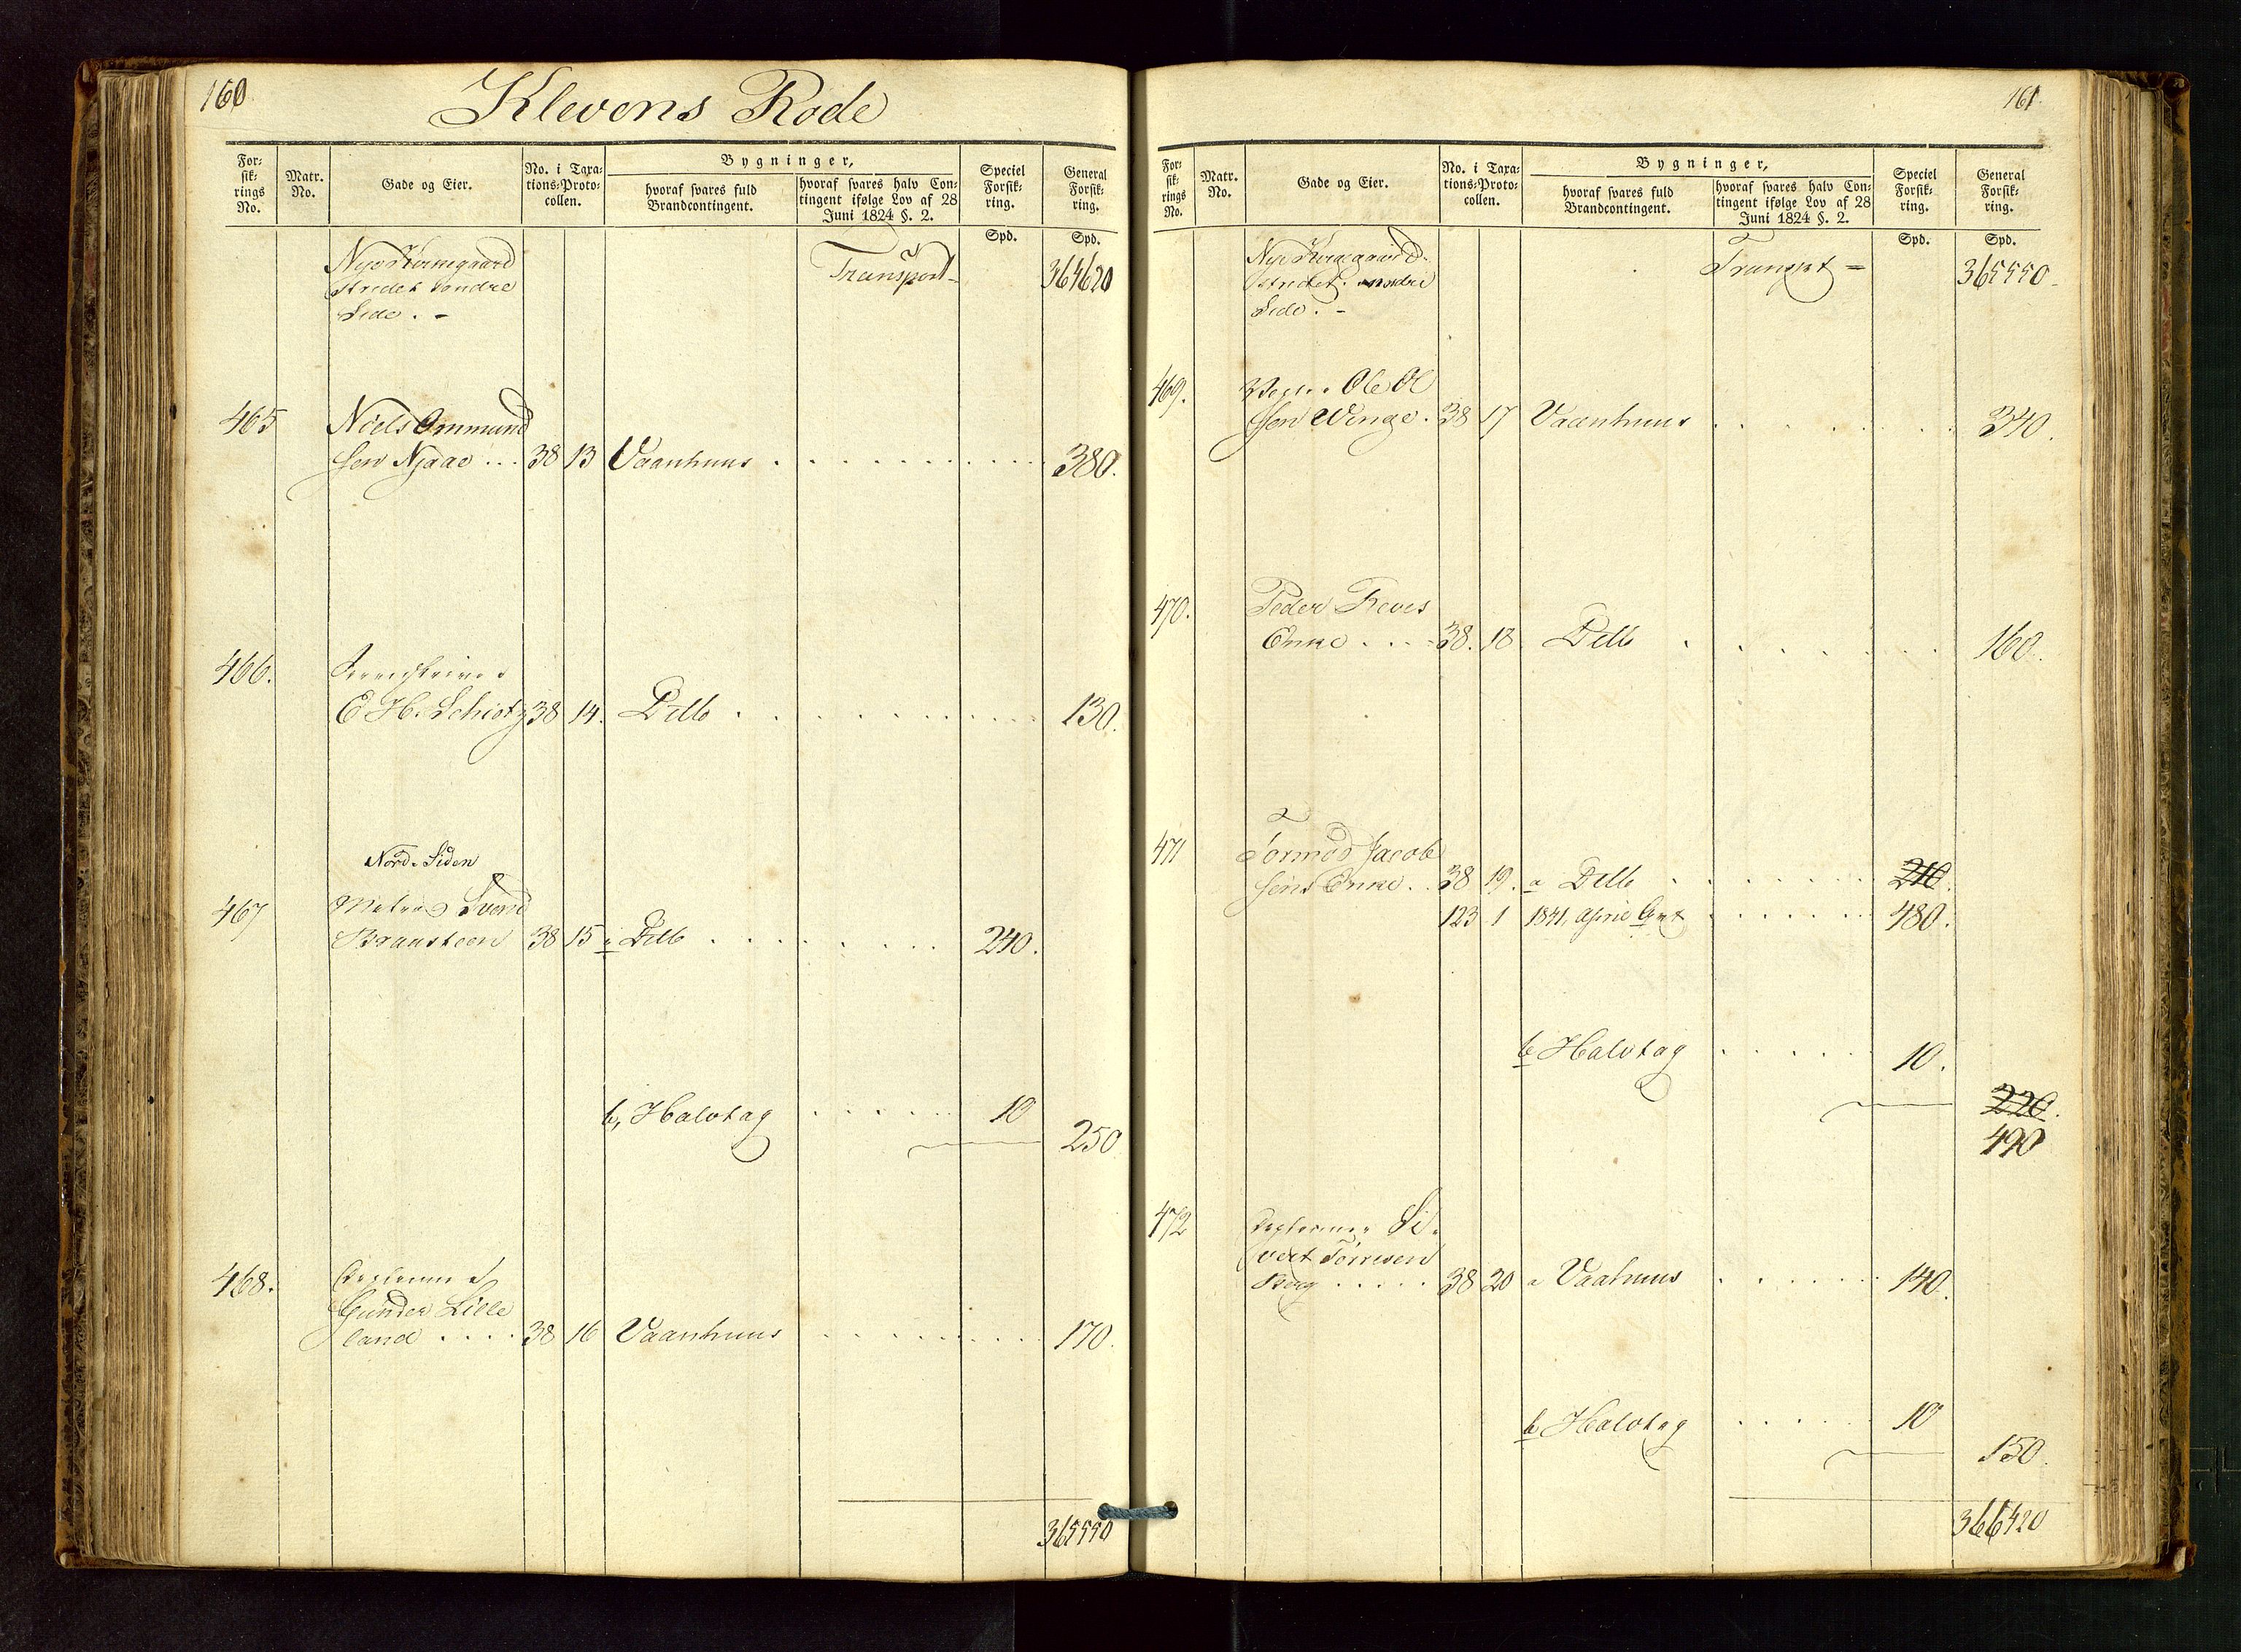 160
Klevens Rode
For:
sik:
rings
No.
Matr.
No.
Gade og Eier.
No. i Taxa:
tions:Proto:
collen.
Bygninger,
hvoraf svares fuld
Brandcontingent.
hvoraf svares halv Con:
tingent ifølge Lov af 28
Juni 1824 §. 2.
Speciel
Forsik:
ring.
General
Forsik:
ring.
Spd. Spd.
Nye Kirkegaard Transport - 364620
strædet søndre
Side. -
465 Niels Ommund
sen Njaae ... 38 13 Vaanhuus . . . . . . . . . . 380.
466.
E. H. Schiotz 38 14. Ditto . . . . . . . . . . 130.
Nord-Siden
467 Svend
Braasteen 38 15 a Ditto . . . . . . . . 240.
b, Halvtag . . . . . 10
250
468.
Gunder Lille
land . . . . 38 16 Vaanhuus . . . . . . . . 170.
365550
161.
For:
sik:
rings
No.
Matr.
No.
Gade og Eier.
No. i Taxa:
tions:Proto:
collen.
Bygninger,
hvoraf svares fuld
Brandcontingent.
hvoraf svares halv Con:
tingent ifølge Lov af 28
Juni 1824 §. 2.
Speciel
Forsik:
ring.
General
Forsik:
ring.
Spd. Spd.
Nye Kirkegaard- Transpt = 365550-
strædet. nordre
Side. -
469. Ole Ol
sen Winge. 38 17 Vaanhuus . . . . . . . 340.
470. Peder Reves
Enke . . . . 38. 18 Ditto . . . . . . . 160.
471 Tormod Jacob
sens Enke . . 38 19. a Ditto . . . . . . . 210.
123 1 1841, April . . . . . . 480.
b Halvtag . . . . . 10.
220.
490
472 Si-
vert Tørresen
Berg . . . . . 38 20 a Vaahuus . . . . . . 140.
b Halvtag . . . . . 10
150.
366420